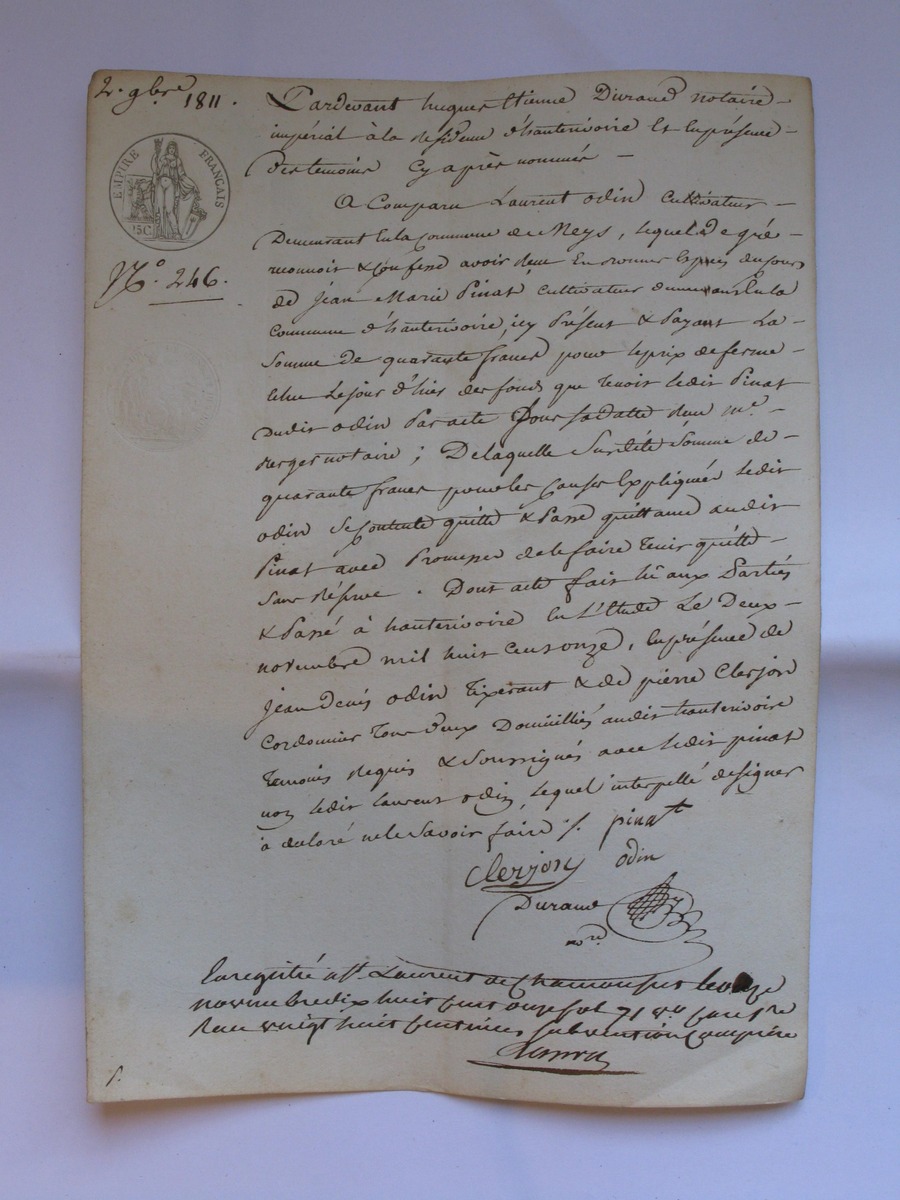 2. 9bre 1811.
EMPIRE FRANÇAIS
75C.
N.o 246.
Pardevant hugues Etienne Durand notaire
impérial à la résidence d'hauterivoire Et en présence
des temoins Cy après nommés
A Comparu Laurent odin Cultivateur
Demeurant En la Commune de Meys, lequel de gré
reconnoit & Confesse avoir reçu En
de Jean Marie Pinat Cultivateur demeurant En la
Commune d'hauterivoire, icy Présent & Payant La
Somme de quarante francs pour le prix de ferme
échu Le jour d'hier des fonds que tenoit ledit Pinat
dudit odin Par acte Sous sa datte reçu me
notaire ; De laquelle Susdite Somme de
quarante francs pour les Causes Expliquées ledit
odin Se Contente quitte & Passe quittance audit
Pinat avec Promesse de le faire tenir quitte
Sans réserve. Dont acte fait lû aux Parties
& Passé à hauterivoire En L'étude Le Deux
novembre mil huit cent onze, En présence de
Jean Denis odin tixerant & de pierre Clerjon
Cordonnier tous deux Domiciliés audit hauterivoire
temoins requis & Soussignés avec ledit pinat
non ledit laurent odin, lequel interpellé de signer
a déclaré ne le Savoir faire ./. pinat
Clerjon odin
Durand
nore
Enregistré a St. Laurent de Chamousset le onze
novembre dix huit cent onze fol 71 Vo Case 1re
Reçu vingt huit centimes subvention Comprise